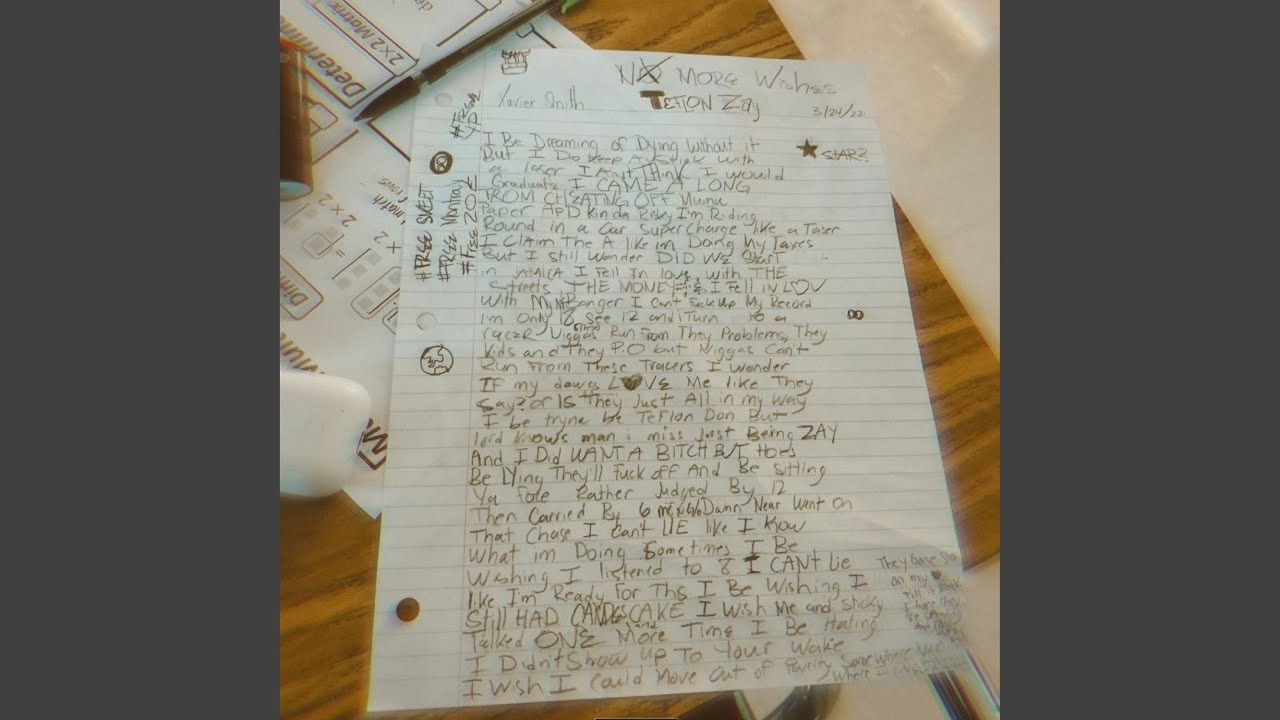 de
2x2 Matrix
Determin
2 x 2
+ 2
=
Dim
#FREE SKEET
#FREE Montray
#Free 202
No MORE Wishes
Xavier Smith
TEFLON Zay
3/24/22
STAR?
I Be Dreaming of Dying Without it
But I Do keep A stick with
a laser I Aint Think I would
Graduate I CAME A LONG
FROM CHEATING OFF Munu
Paper APD Kinda Risky I'm Riding
Round in a car SuperCharge like a Taser
I Claim The A like im Doing My Taxes
But I still Wonder DID WE START
in JAMICA I Fell In love with THE
Streets THE MONEY I FELL IN LOV
With My Banger I Can't Fuck Up My Record
I'm Only 18 See 12 and iTurn to a
racer Niggas Run From They Problems, They
Kids and They P.O but Niggas Can't
Run From These Tracers I Wonder
IF my dawgs LOVE Me like They
Say? or Is They Just All in my Way
I be tryne be Teflon Don But
lord knows man i miss Just Being ZAY
And I Did WANT A BITCH BUT Hoes
Be Lying They'll Fuck off And Be Sitting
Ya Rather Judged By 12
Then Carried By 6 Damn Near Went On
That Chase I can't LIE like I Know
What im Doing Sometimes I Be
Wishing I listened to 8 I CANT Lie
like I'm Ready For This I Be Wishing I
Still HAD CAKE I Wish Me and Sticky
Talked ONE More Time I Be Hating
I Didn't Show Up To Your Wake
I Wish I Could Move Out of Somewhere
Where I
They Gone
on my